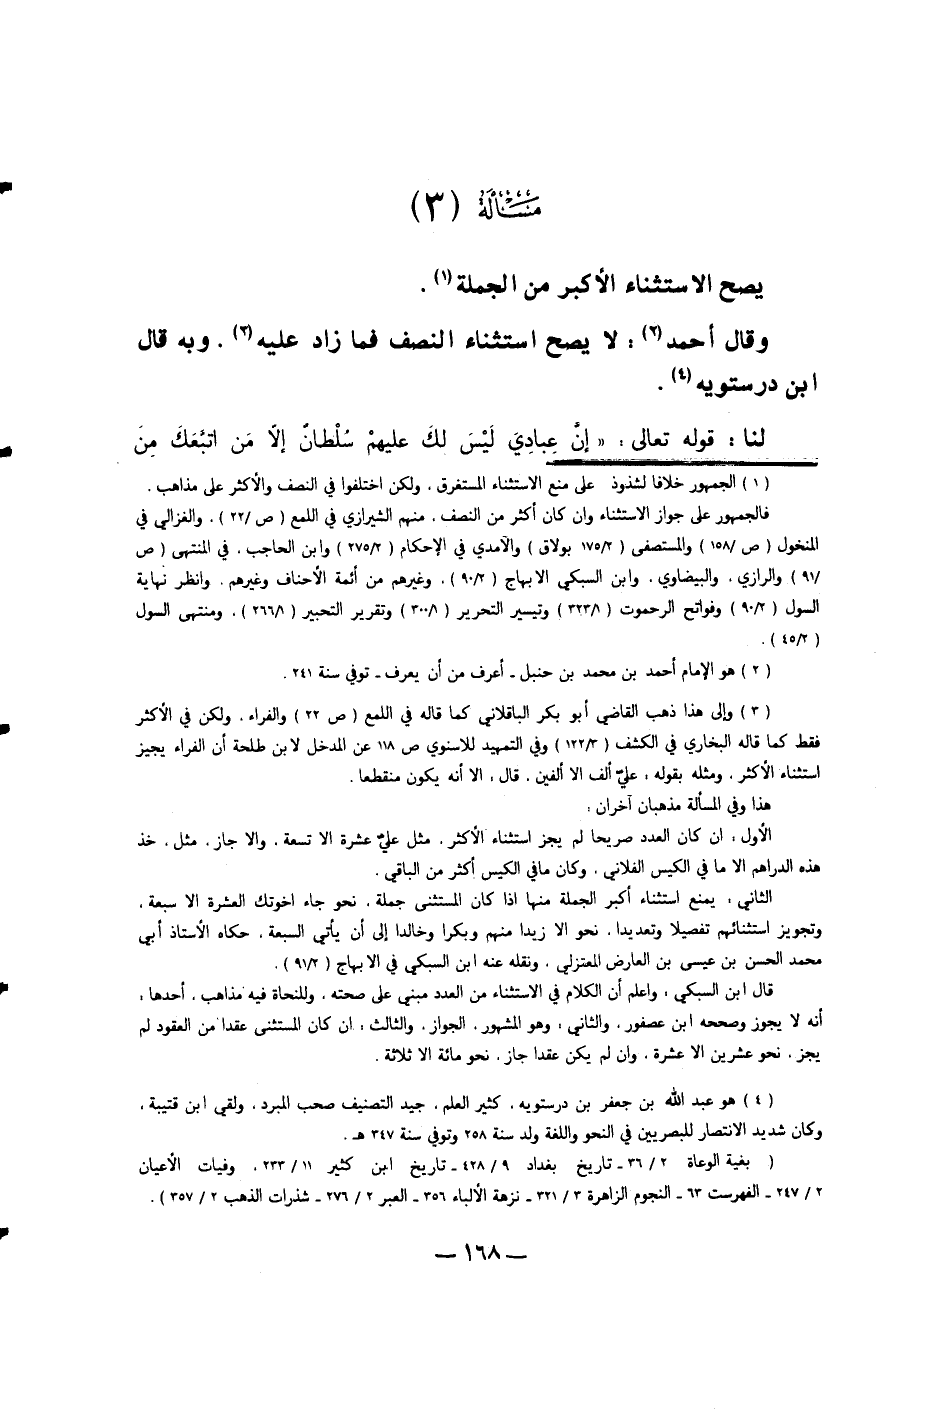 مَسْأَلَة (٣)
يصح الاستثناء الأكبر من الجملة(١) .
وقال أحمد(٢) : لا يصح استثناء النصف فما زاد عليه(٣) . وبه قال
ابن درستويه(٤) .
لنا : قوله تعالى : « إنَّ عِبادِيَ لَيْسَ لكَ عليهمْ سُلْطانٌ إلّا مَن اتبَعَكَ مِنَ
( ١ ) الجمهور خلافا لشذوذ على منع الاستثناء المستفرق . ولكن اختلفوا في النصف والأكثر على مذاهب .
فالجمهور على جواز الاستثناء وان كان أكثر من النصف . منهم الشيرازي في اللمع ( ص /٢٢ ) . والغزالي في
المنخول ( ص /١٥٨ ) والمستصفى ( ١٧٥/٢ بولاق ) والآمدي في الإحكام ( ٢٧٥/٢ ) وابن الحاجب . في المنتهى ( ص
/٩١ ) والرازي . والبيضاوي . وابن السبكي الابهاج ( ٩٠/٢ ) . وغيرهم من أئمة الأحناف وغيرهم . وانظر نهاية
السول ( ٩٠/٢ ) وفواتح الرحموت ( ٣٢٣/١ ) وتيسير التحرير ( ٣٠٠/١ ) وتقرير التحبير ( ٢٦٦/١ ) . ومنتهى السول
( ٤٥/٢ ) .
( ٢ ) هو الإمام أحمد بن محمد بن حنبل ـ أعرف من أن يعرف ـ توفي سنة ٢٤١ .
( ٣ ) وإلى هذا ذهب القاضي أبو بكر الباقلاني كما قاله في اللمع ( ص ٢٢ ) والفراء . ولكن في الأكثر
فقط كما قاله البخاري في الكشف ( ١٢٢/٣ ) وفي التمهيد للاسنوي ص ١١٨ عن المدخل لابن طلحة أن الفراء يجيز
استثناء الأكثر . ومثله بقوله : عليّ ألف الا ألفين . قال : الا أنه يكون منقطعا .
هذا وفي المسألة مذهبان آخران :
الأول : ان كان العدد صريحا لم يجز استثناء الأكثر . مثل عليّ عشرة الا تسعة . والا جاز . مثل . خذ
هذه الدراهم الا ما في الكيس الفلاني . وكان مافي الكيس أكثر من الباقي .
الثاني : يمنع استثناء أكبر الجملة منها اذا كان المستثنى جملة . نحو جاء اخوتك العشرة الا سبعة .
وتجويز استثنائهم تفصيلا وتعديدا . نحو الا زيدا منهم وبكرا وخالدا إلى أن يأتي السبعة . حكاه الأستاذ أبي
محمد الحسن بن عيسى بن العارض المعتزلي . ونقله عنه ابن السبكي في الابهاج ( ٩١/٢ ) .
قال ابن السبكي : واعلم أن الكلام في الاستثناء من العدد مبني على صحته . وللنحاة فيه مذاهب . أحدها :
أنه لا يجوز وصححه ابن عصفور . والثاني : وهو المشهور . الجواز . والثالث : ان كان المستثنى عقدا من العقود لم
يجز . نحو عشرين الا عشرة . وان لم يكن عقدا جاز . نحو مائة الا ثلاثة .
( ٤ ) هو عبد الله بن جعفر بن درستويه . كثير العلم . جيد التصنيف صحب المبرد . ولقي ابن قتيبة .
وكان شديد الانتصار للبصريين في النحو واللغة ولد سنة ٢٥٨ وتوفي سنة ٣٤٧ هـ .
( بغية الوعاة ٢ / ٣٦ ـ تاريخ بغداد ٩ / ٤٢٨ ـ تاريخ ابن كثير ١١ / ٢٣٣ . وفيات الأعيان
٢ / ٢٤٧ ـ الفهرست ٦٣ ـ النجوم الزاهرة ٣ / ٣٢١ ـ نزهة الألباء ٣٥٦ ـ العبر ٢ / ٢٧٦ ـ شذرات الذهب ٢ / ٣٥٧ ) .
— ١٦٨ —